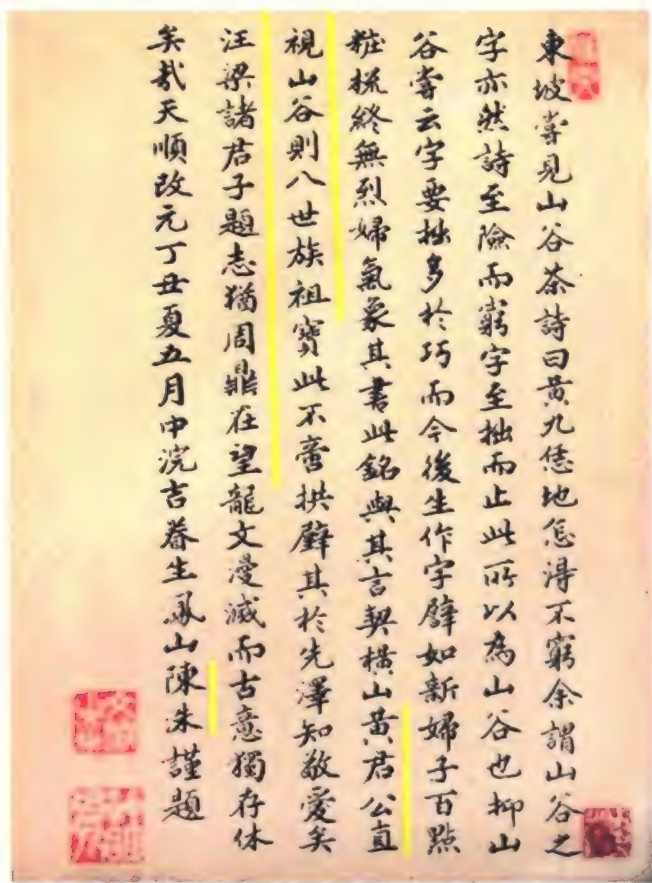 東坡嘗見山谷茶詩曰黃九恁地怎得不窮余謂山谷之
字亦然詩至險而窮字至拙而止此所以為山谷也抑山
谷嘗云字要拙多於巧而今後生作字譬如新婦子百點
粧梳終無烈婦氣象其書此銘與其言契橫山黃君公直
視山谷則八世族祖寶此不啻拱璧其於先澤知敬愛矣
汪梁諸君子題志猶周鼎在望龍文漫滅而古意獨存休
矣哉天順改元丁丑夏五月中浣吉眷生鳳山陳朱謹題